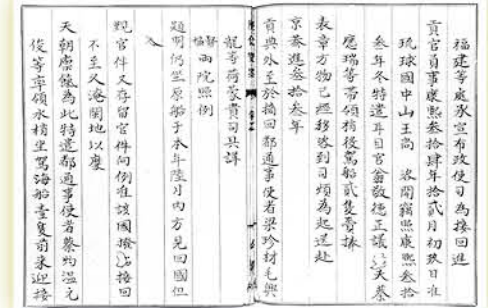 福建等處承宣布政使司為接回進
貢官員事康熙叁拾肆年拾貳月初玖日准
琉球國中山王尚 咨開竊照康熙叁拾
叁年冬特遣耳目官翁敬德正議大夫蔡
應瑞等齎領梢役駕船貳隻賫捧
表章方物已經移咨到司煩為起送赴
京恭進叁拾叁年
貢典外至於摘回都通事使者梁珍材毛興
龍等荷蒙貴司具詳
督撫兩院照例
題明仍坐原船于本年陸月內方見回國但
覲官件又存留官伴向例在該國撥船接回
不至久淹閩地以糜
天朝廩餼為此特遣都通事使者蔡灼溫允
俊等率領水梢坐駕海船壹隻前來迎接